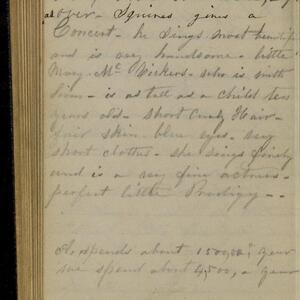 over - Squires gives a
Concert - he sings most beautif
and is very handsome - little
Mary Mc Vickers - who is with
him - is as tall as a child ten
years old - short Curly Hair -
fair skin - blue eyes - very
short clothes - she sings finely
and is a very fine actress -
perfect little Prodigy - -
A, spends about 1500,00, a year
we spend about 4,500, a year